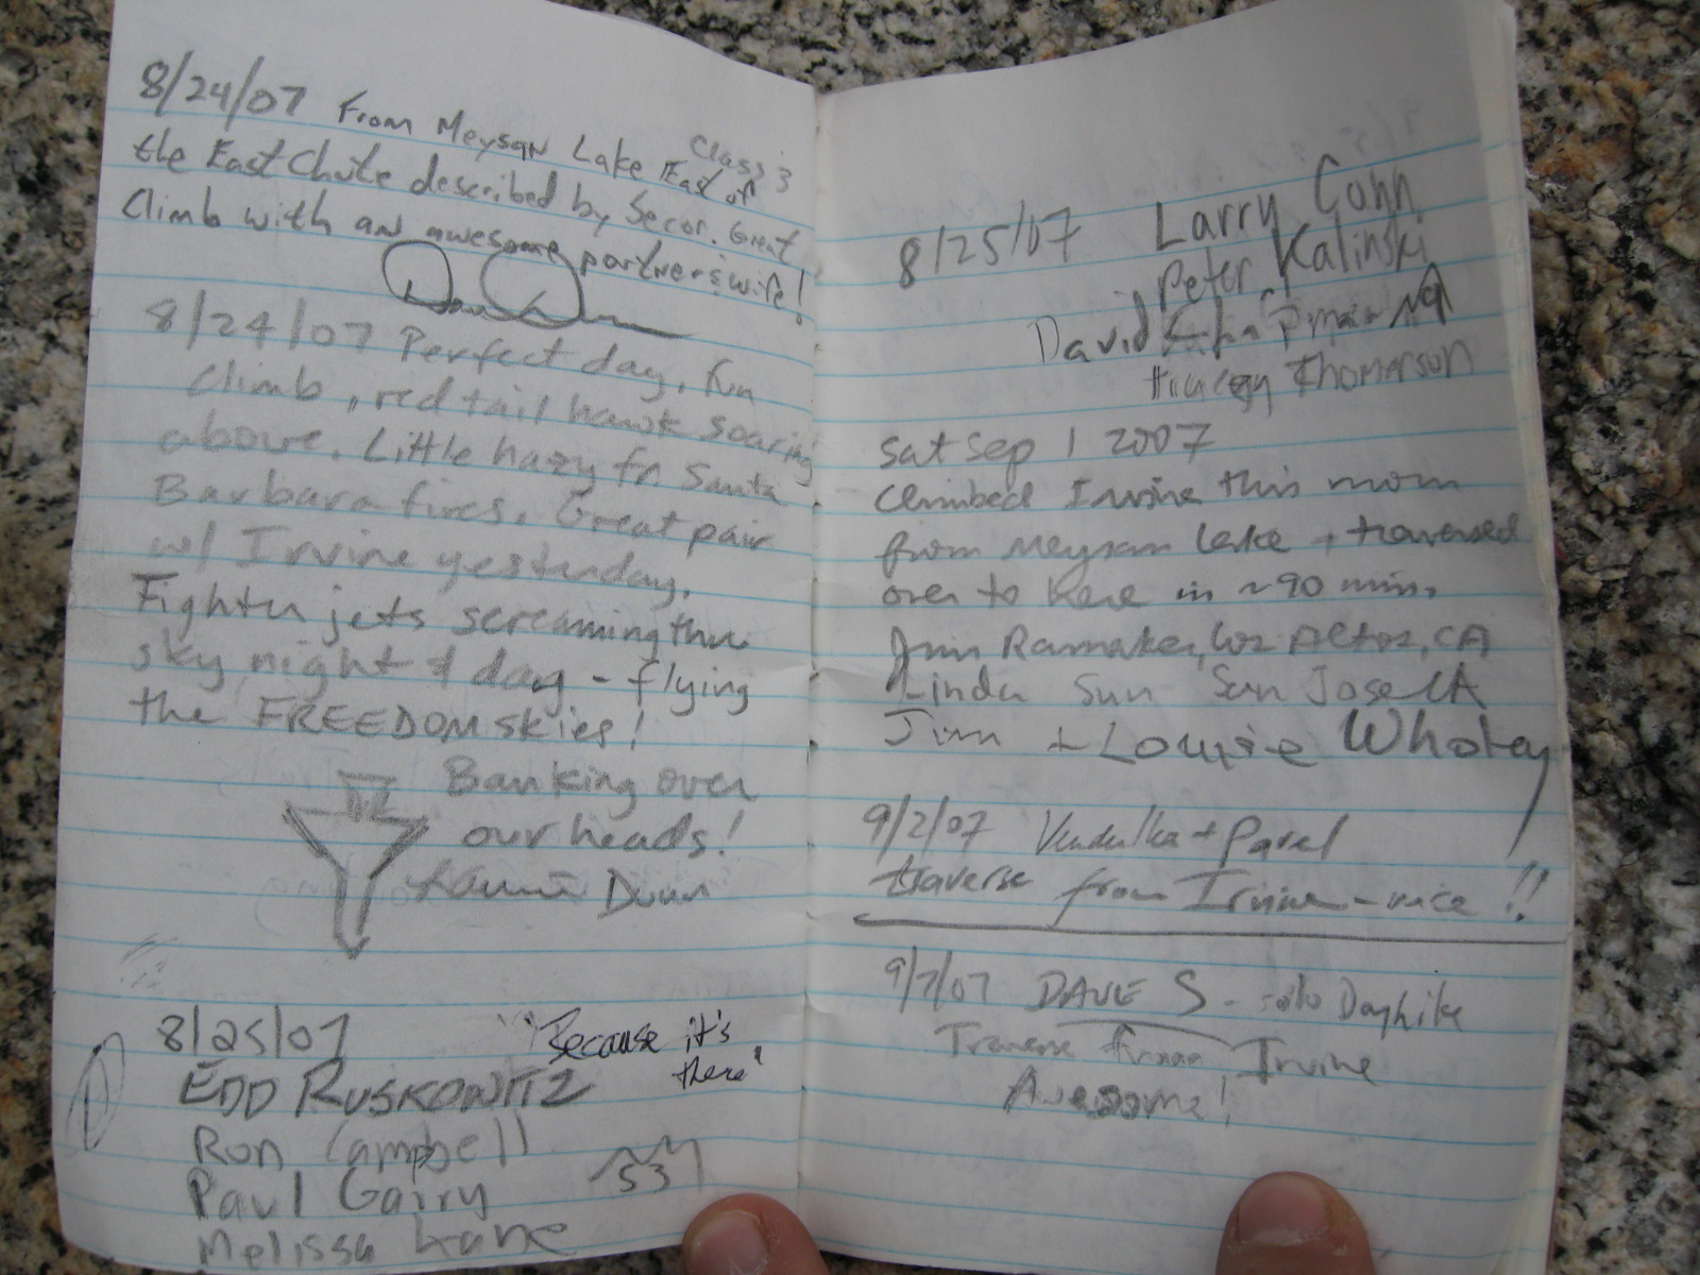 8/24/07 From Meysan Lake East of
Class 3
the East Chute described by Secor. Great
Climb with an awesome partner & wife!
8/24/07 Perfect day, fun
climb, red tail hawk soaring
above. Little hazy fr Santa
Barbara fires. Great pair
w/ Irvine yesterday.
Fighter jets screaming thru
sky night & day - flying
the FREEDOM skies!
Banking over
our heads!
Dunn
8/25/07
"Because it's
there"
EDD RUSKOWITZ
Ron Campbell
Paul Garry
53
Melissa Lane
8/25/07 Larry Conn
Peter Kalinski
David
Thomerson
Sat Sep 1 2007
Climbed Irvine this morn
from Meysan Lake + traversed
over to here in ~90 min.
Jim Ramaker, Los Altos, CA
Linda Sun San Jose CA
Jim + Louise Wholey
9/2/07 Vendulka + Pavel
traverse from Irvine - nice!!
9/7/07 DAVE S - solo Dayhike
Traverse from Irvine
Awesome!